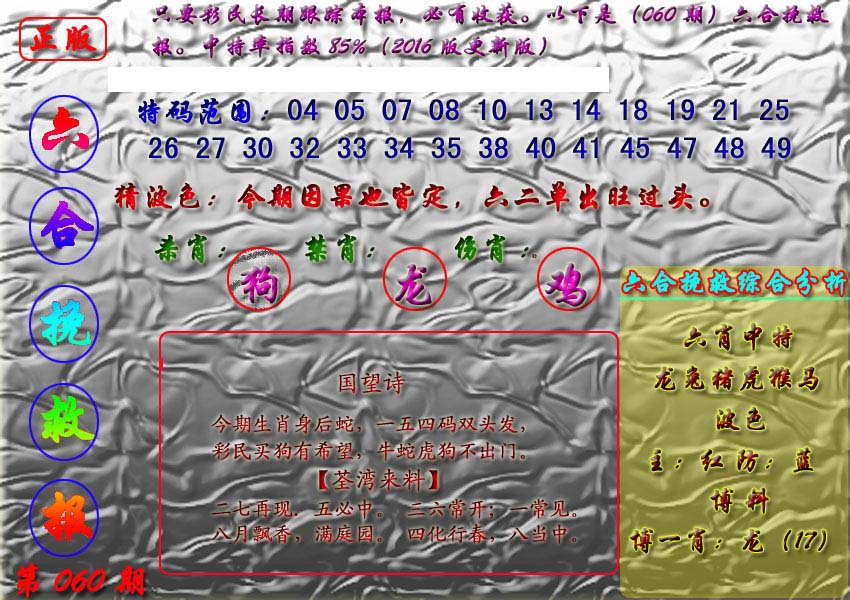 正版
只要彩民长期跟踪本报，必有收获。以下是（060期）六合挽救
报。中特率指数85%（2016版更新版）
六合挽救报
第060期
特码范围：04 05 07 08 10 13 14 18 19 21 25
26 27 30 32 33 34 35 38 40 41 45 47 48 49
猜波色：今期因果也皆定，六二单出旺过头。
杀肖：狗 禁肖：龙 伤肖：鸡。
国望诗
今期生肖身后蛇，一五四码双头发，
彩民买狗有希望，牛蛇虎狗不出门。
【荃湾来料】
二七再现．五必中。 三六常开；一常见。
八月飘香，满庭园。 四化行春，八当中。
六合挽救综合分析
六肖中特
龙兔猪虎猴马
波色
主：红防：蓝
博料
博一肖：龙（17）